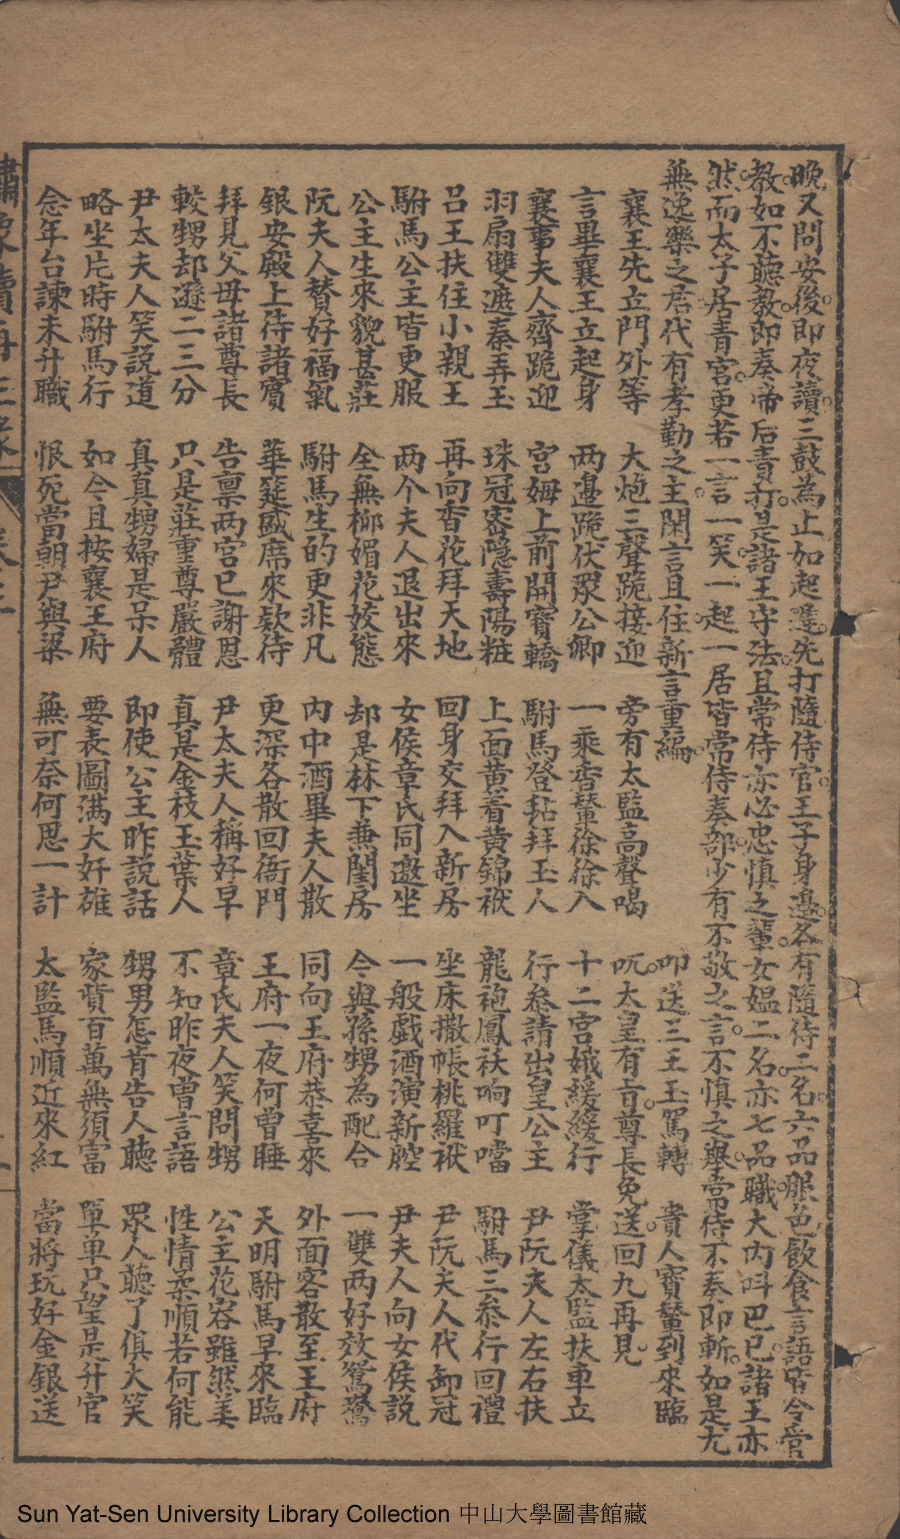 晚又問安後即夜讀三鼓為止如起遲先打隨侍官王子身邊各有隨侍二名六品服色飲食言語皆令官
教如不聽教即奏帝后責打是諸王守法且常侍亦必忠慎之輩女媪二名亦七品職大內呌巴巴諸王亦
然而太子居青宮更若一言一笑一起一居皆常侍奏部少有不敬之言不慎之舉常侍不奏即斬如是尤
無逸樂之居代有孝勤之主閑言且住新言重編 叩送三王玉駕轉 貴人寶輦到來臨
襄王先立門外等 大炮三聲跪接迎 旁有太監高聲喝 吭太皇有旨尊長免送回九再見
言畢襄王立起身 两邊跪伏眾公卿 一乘香輦徐徐入 十二宮娥緩緩行 掌儀太監扶車立
襄事夫人齊跪迎 宮姆上前開寶轎 駙馬登毡拜玉人 行叅請出皇公主 尹阮夫人左右扶
羽扇雙遮秦弄玉 珠冠密隐壽陽粧 上面黃着黃錦袱 龍袍鳳袄响叮噹 駙馬三叅行回禮
呂王扶住小親王 再向香花拜天地 回身交拜入新房 坐床撒帳桃羅袱 尹阮夫人代卸冠
駙馬公主皆更服 两个夫人退出來 女侯章氏同邀坐 一般戲酒演新腔 尹夫人向女侯說
公主生來貌甚莊 全無柳媚花姣態 却是林下兼閨房 今與孫甥為配合 一雙两好效鴛鴦
阮夫人賛好福氣 駙馬生的更非凡 內中酒畢夫人散 同向王府恭喜來 外面客散至王府
銀安殿上待諸賓 華筵盛席來欵待 更深各散回衙門 王府一夜何曾睡 天明駙馬早來臨
拜見父母諸尊長 告禀两宮已謝恩 尹太夫人稱好早 章氏夫人笑問甥 公主花容雖然美
較甥却遜二三分 只是莊重尊嚴體 真是金枝玉葉人 不知昨夜曾言語 性情柔順若何能
尹太夫人笑說道 真真甥婦是呆人 即使公主昨說話 甥男怎肯告人聽 眾人聽了俱大笑
略坐片時駙馬行 如今且按襄王府 要表圖滿大奸雄 家貲百萬無須富 單单只望是升官
念年台諫未升職 恨死當朝尹與梁 無可奈何思一計 太監馬順近來紅 當將玩好金銀送
Sun Yat-Sen University Library Collection 中山大學圖書館藏